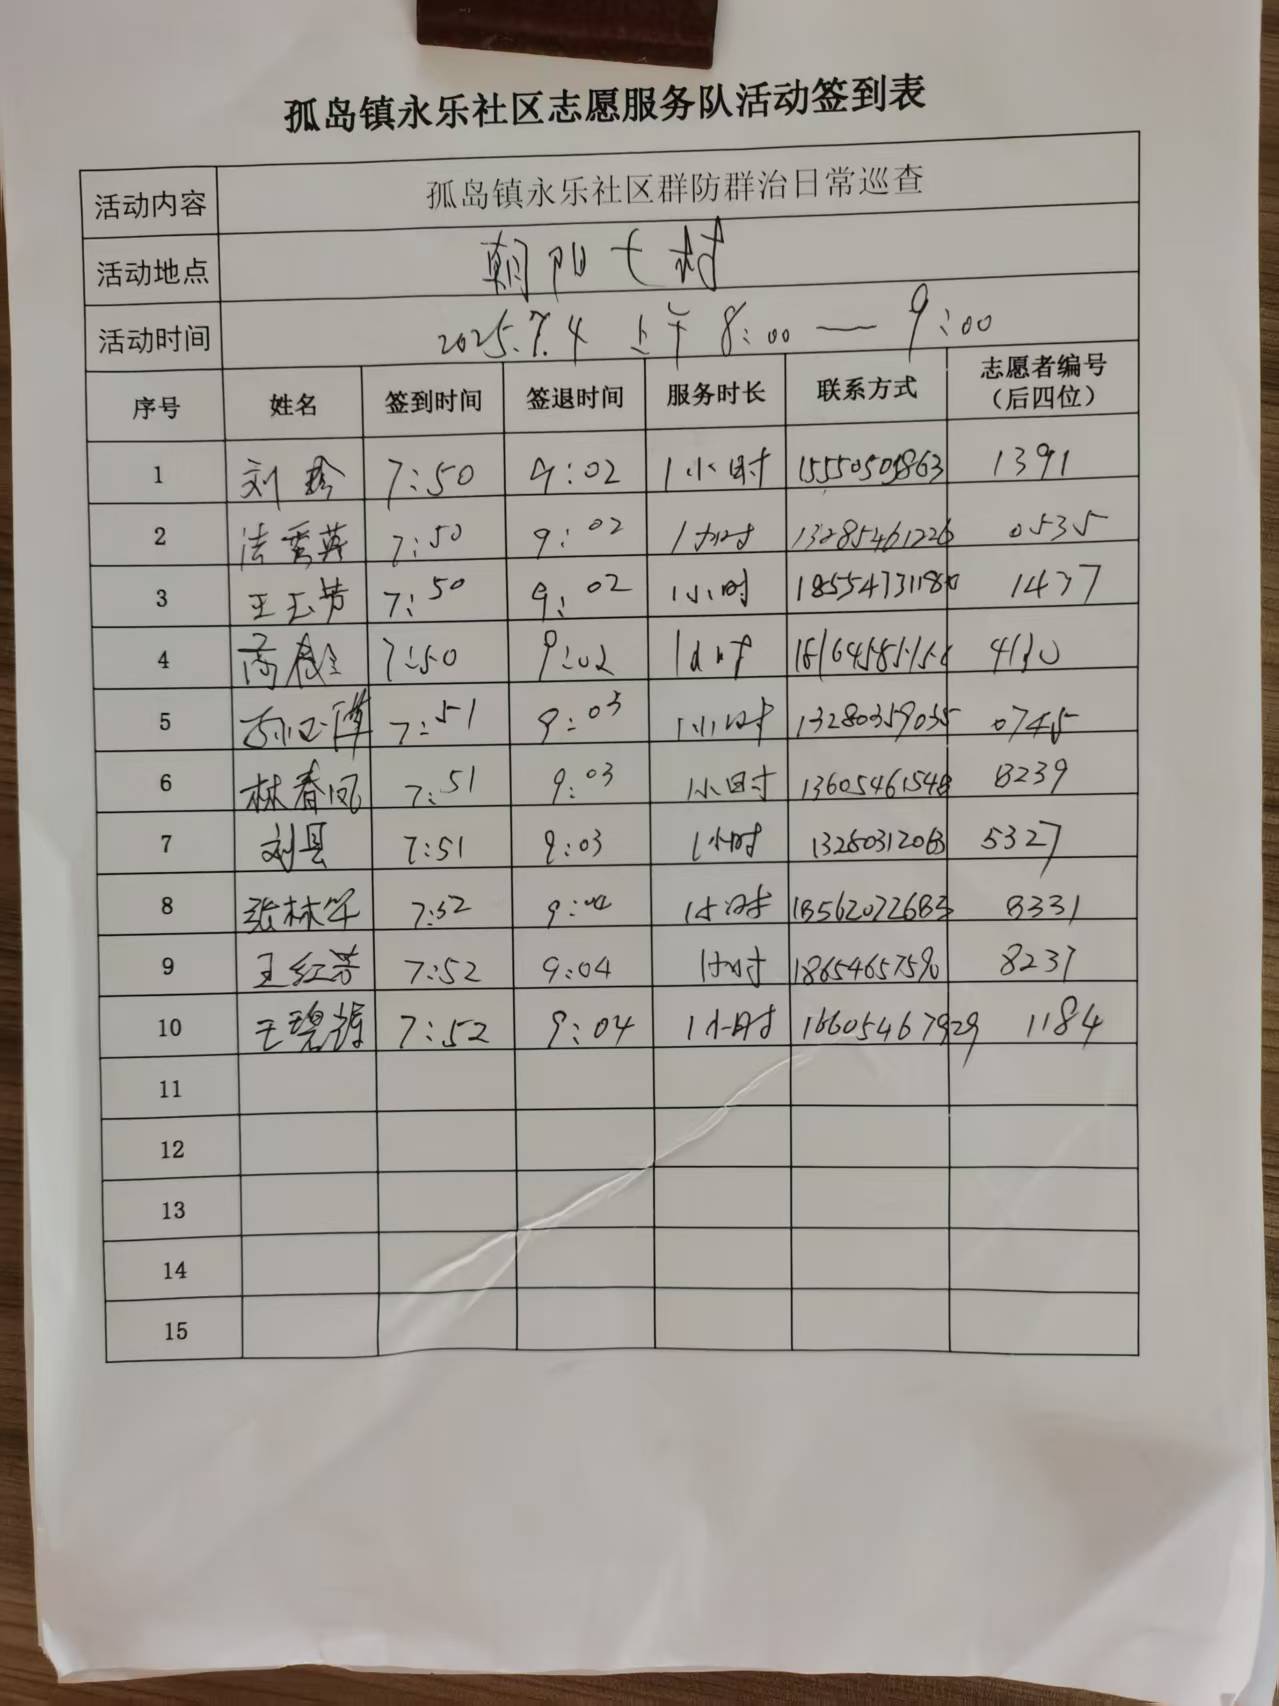 孤岛镇永乐社区志愿服务队活动签到表
活动内容 孤岛镇永乐社区群防群治日常巡查
活动地点 朝阳七村
活动时间 2025.7.4 上午 8:00 — 9:00
序号 姓名 签到时间 签退时间 服务时长 联系方式 志愿者编号（后四位）
1 刘珍 7:50 9:02 1小时 15550505863 1391
2 法秀英 7:50 9:02 1小时 13285461226 0535
3 王玉芳 7:50 9:02 1小时 18554731180 1437
4 高 7:50 9:02 1小时
5 7:51 9:03 1小时 13280359035 0745
6 林春凤 7:51 9:03 1小时 13605461548 8239
7 刘县 7:51 9:03 1小时 5327
8 张林 7:52 9:04 1小时 18562022683 8331
9 王红芳 7:52 9:04 1小时 18654657590 8237
10 王碧 7:52 9:04 1小时 16605467929 1184
11
12
13
14
15